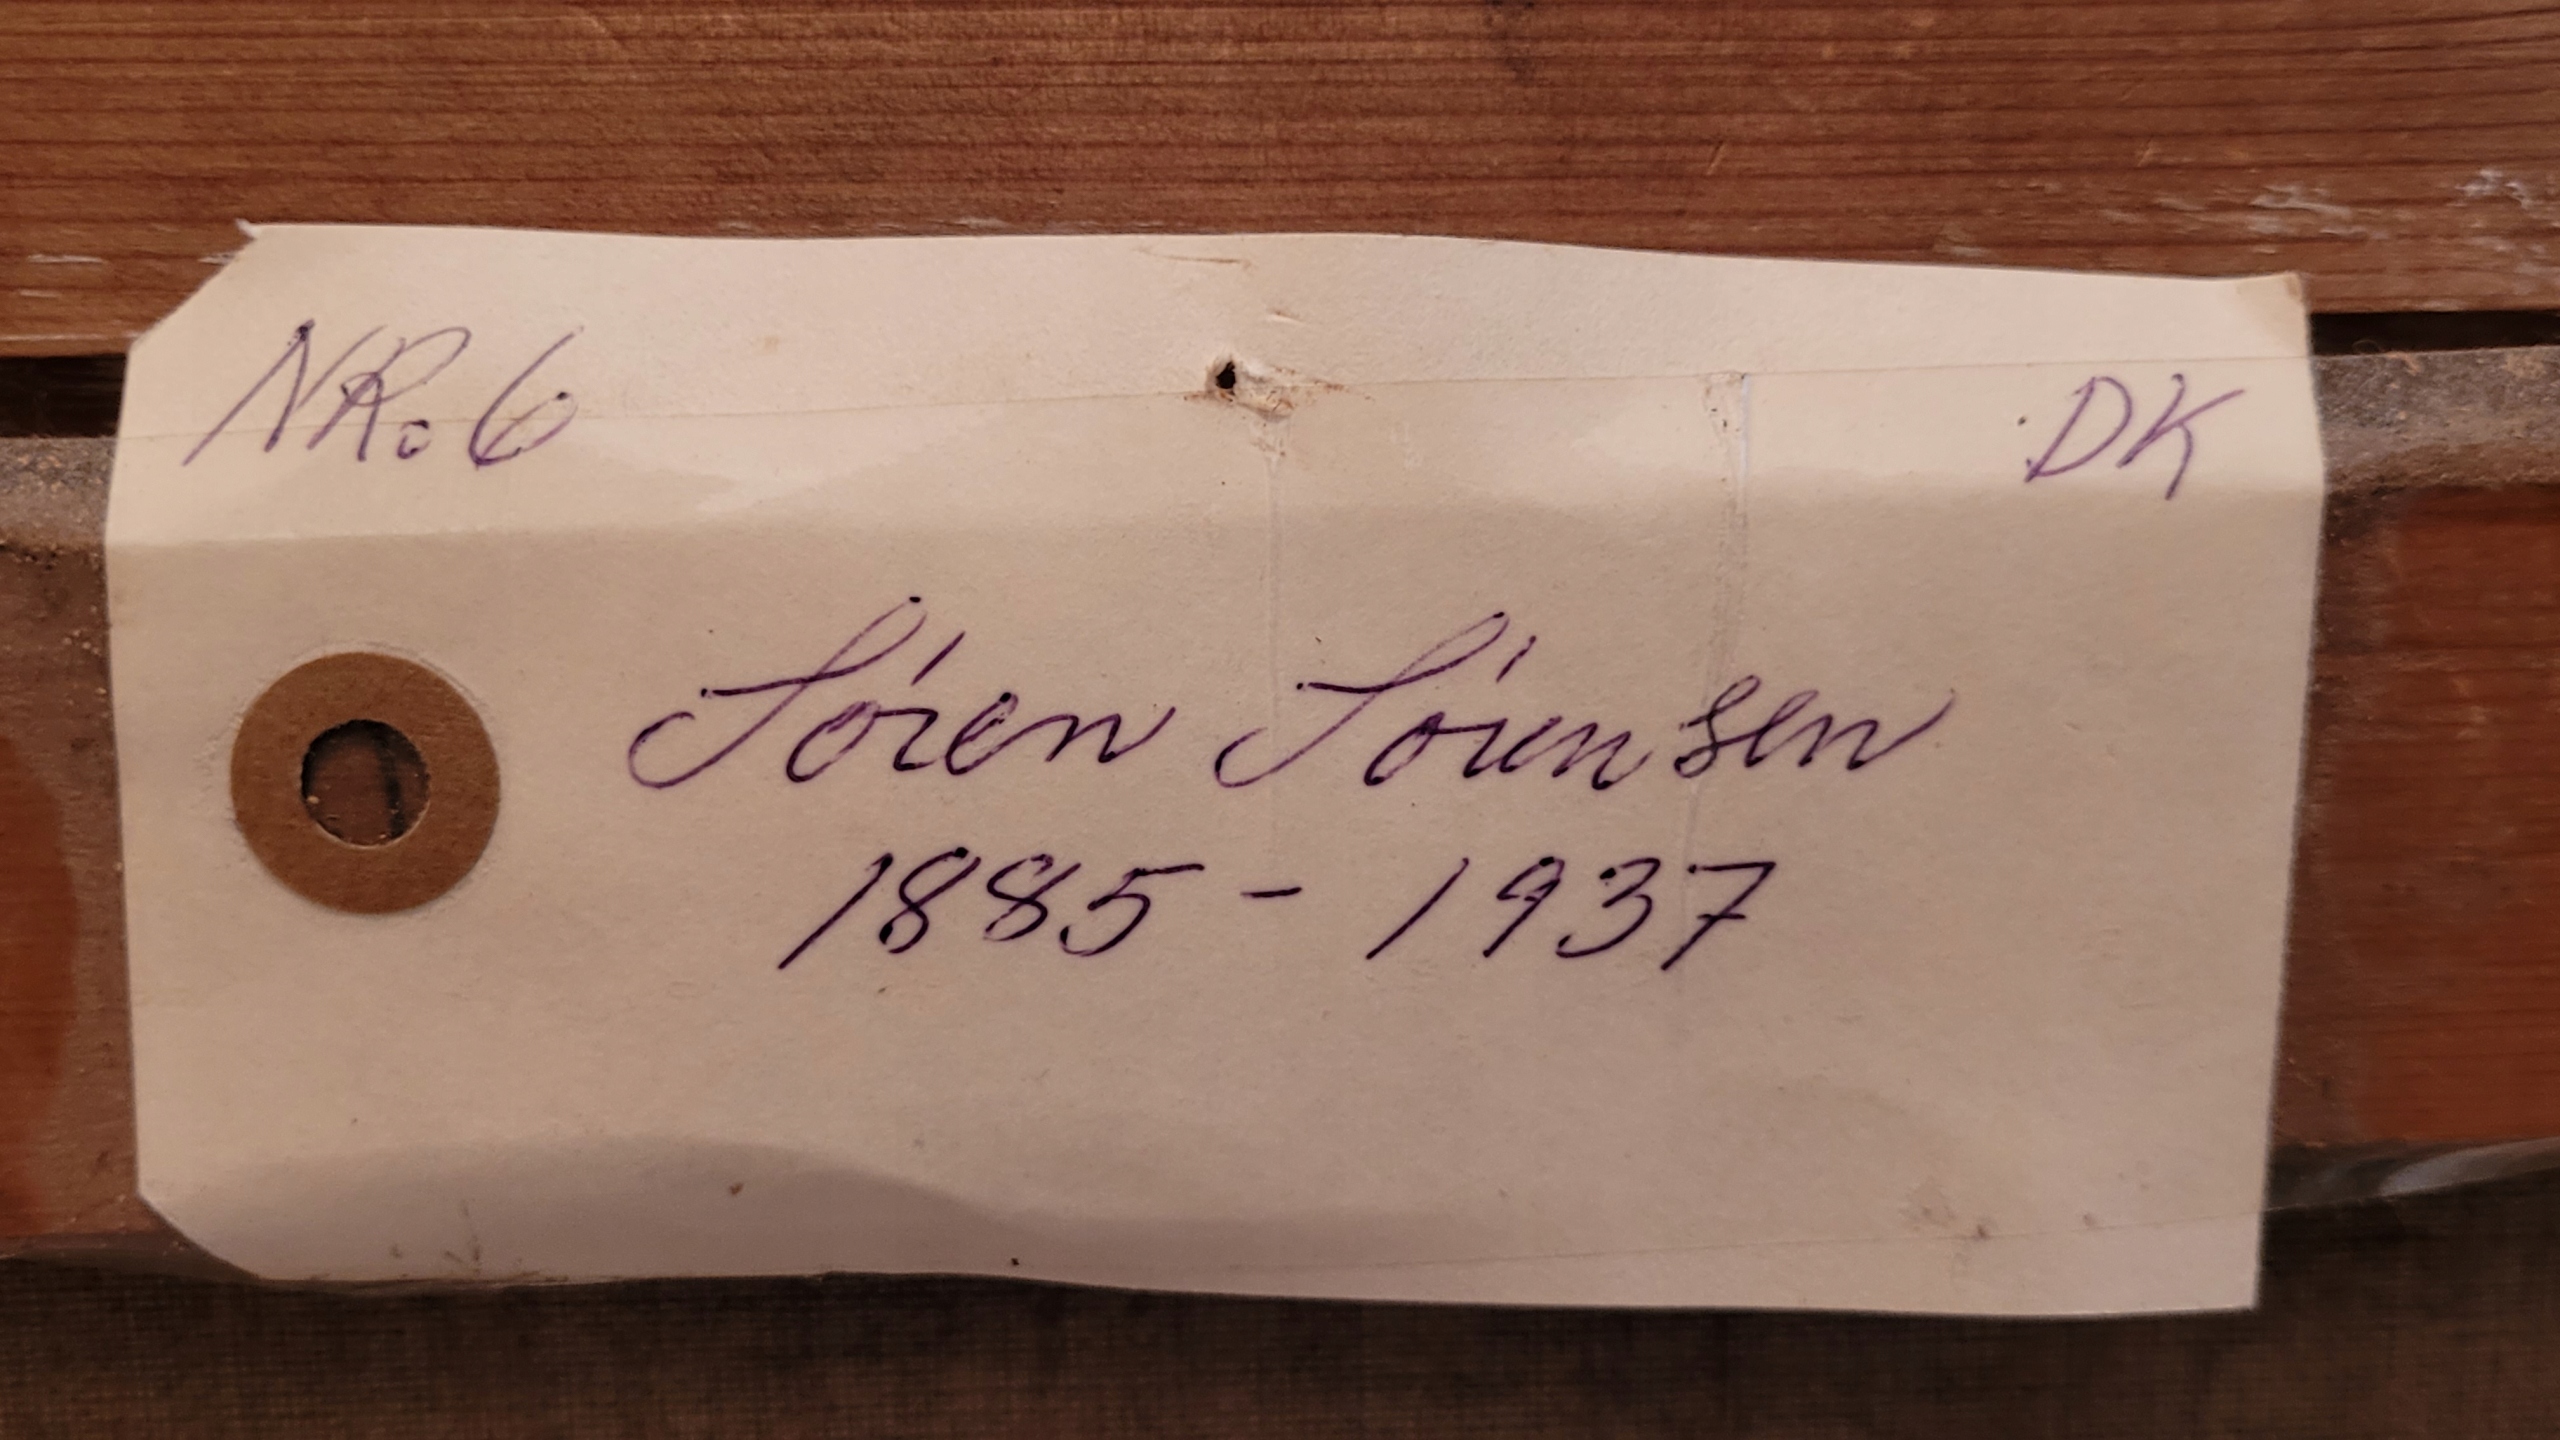 NR. 6
DK
Sóren Sórensen
1885 - 1937